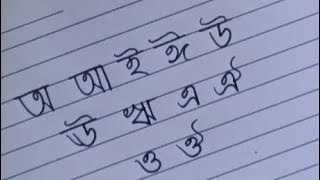 অ আ ই ঈ উ
ঊ ঋ এ ঐ
ও ঔ